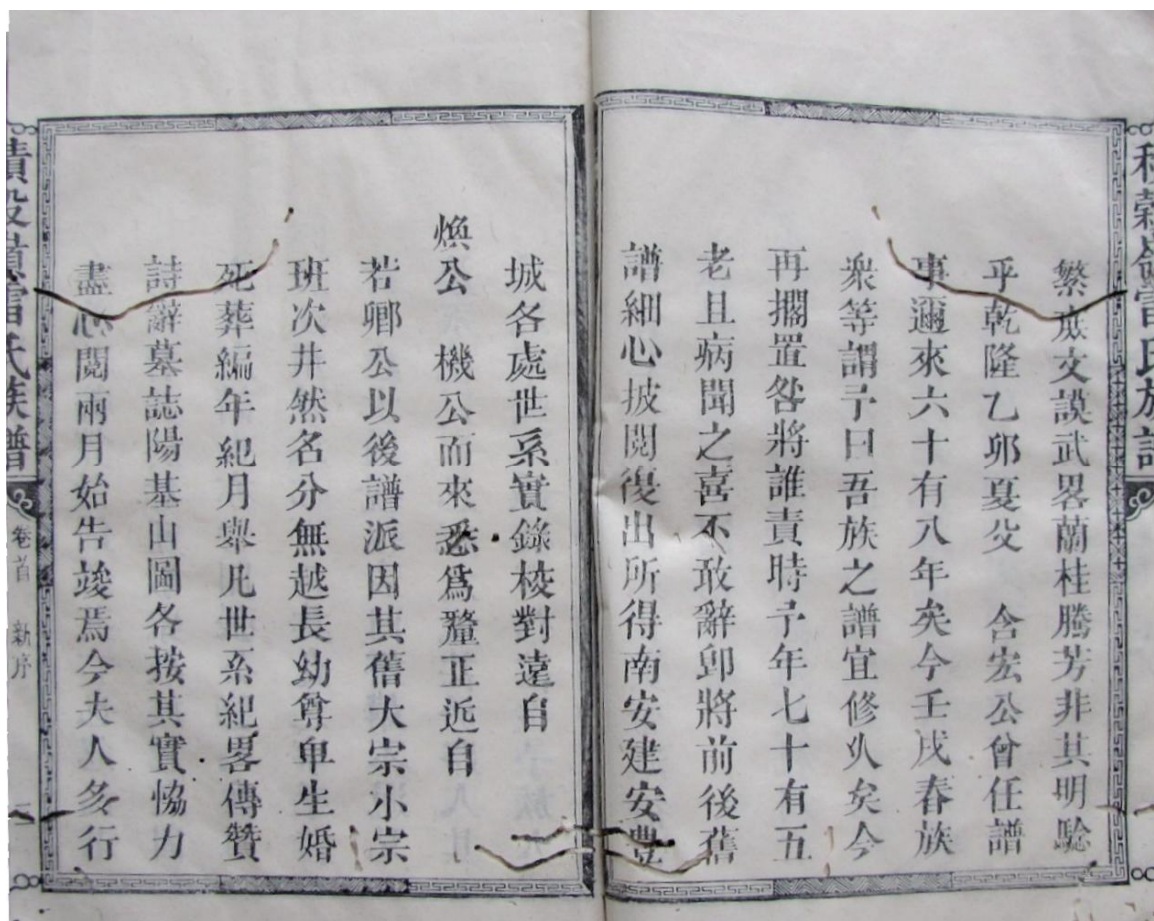 繁衍文謨武畧蘭桂騰芳非其明驗
乎乾隆乙夘夏父 含宏公曾任譜
事邇來六十有八年矣今壬戌春族
衆等謂予曰吾族之譜宜修久矣今
再擱置咎將誰責時予年七十有五
老且病聞之喜不敢辭卽將前後舊
譜細心披閱復出所得南安建安豊
城各處世系實錄校對遠自
煥公 機公而來悉爲釐正近自
若卿公以後譜派因其舊大宗小宗
班次井然名分無越長幼尊卑生婚
死葬編年紀月舉凡世系紀畧傳贊
詩辭墓誌陽基山圖各按其實恊力
盡心閱兩月始告竣焉今夫人多行
氏族譜
卷首 新序